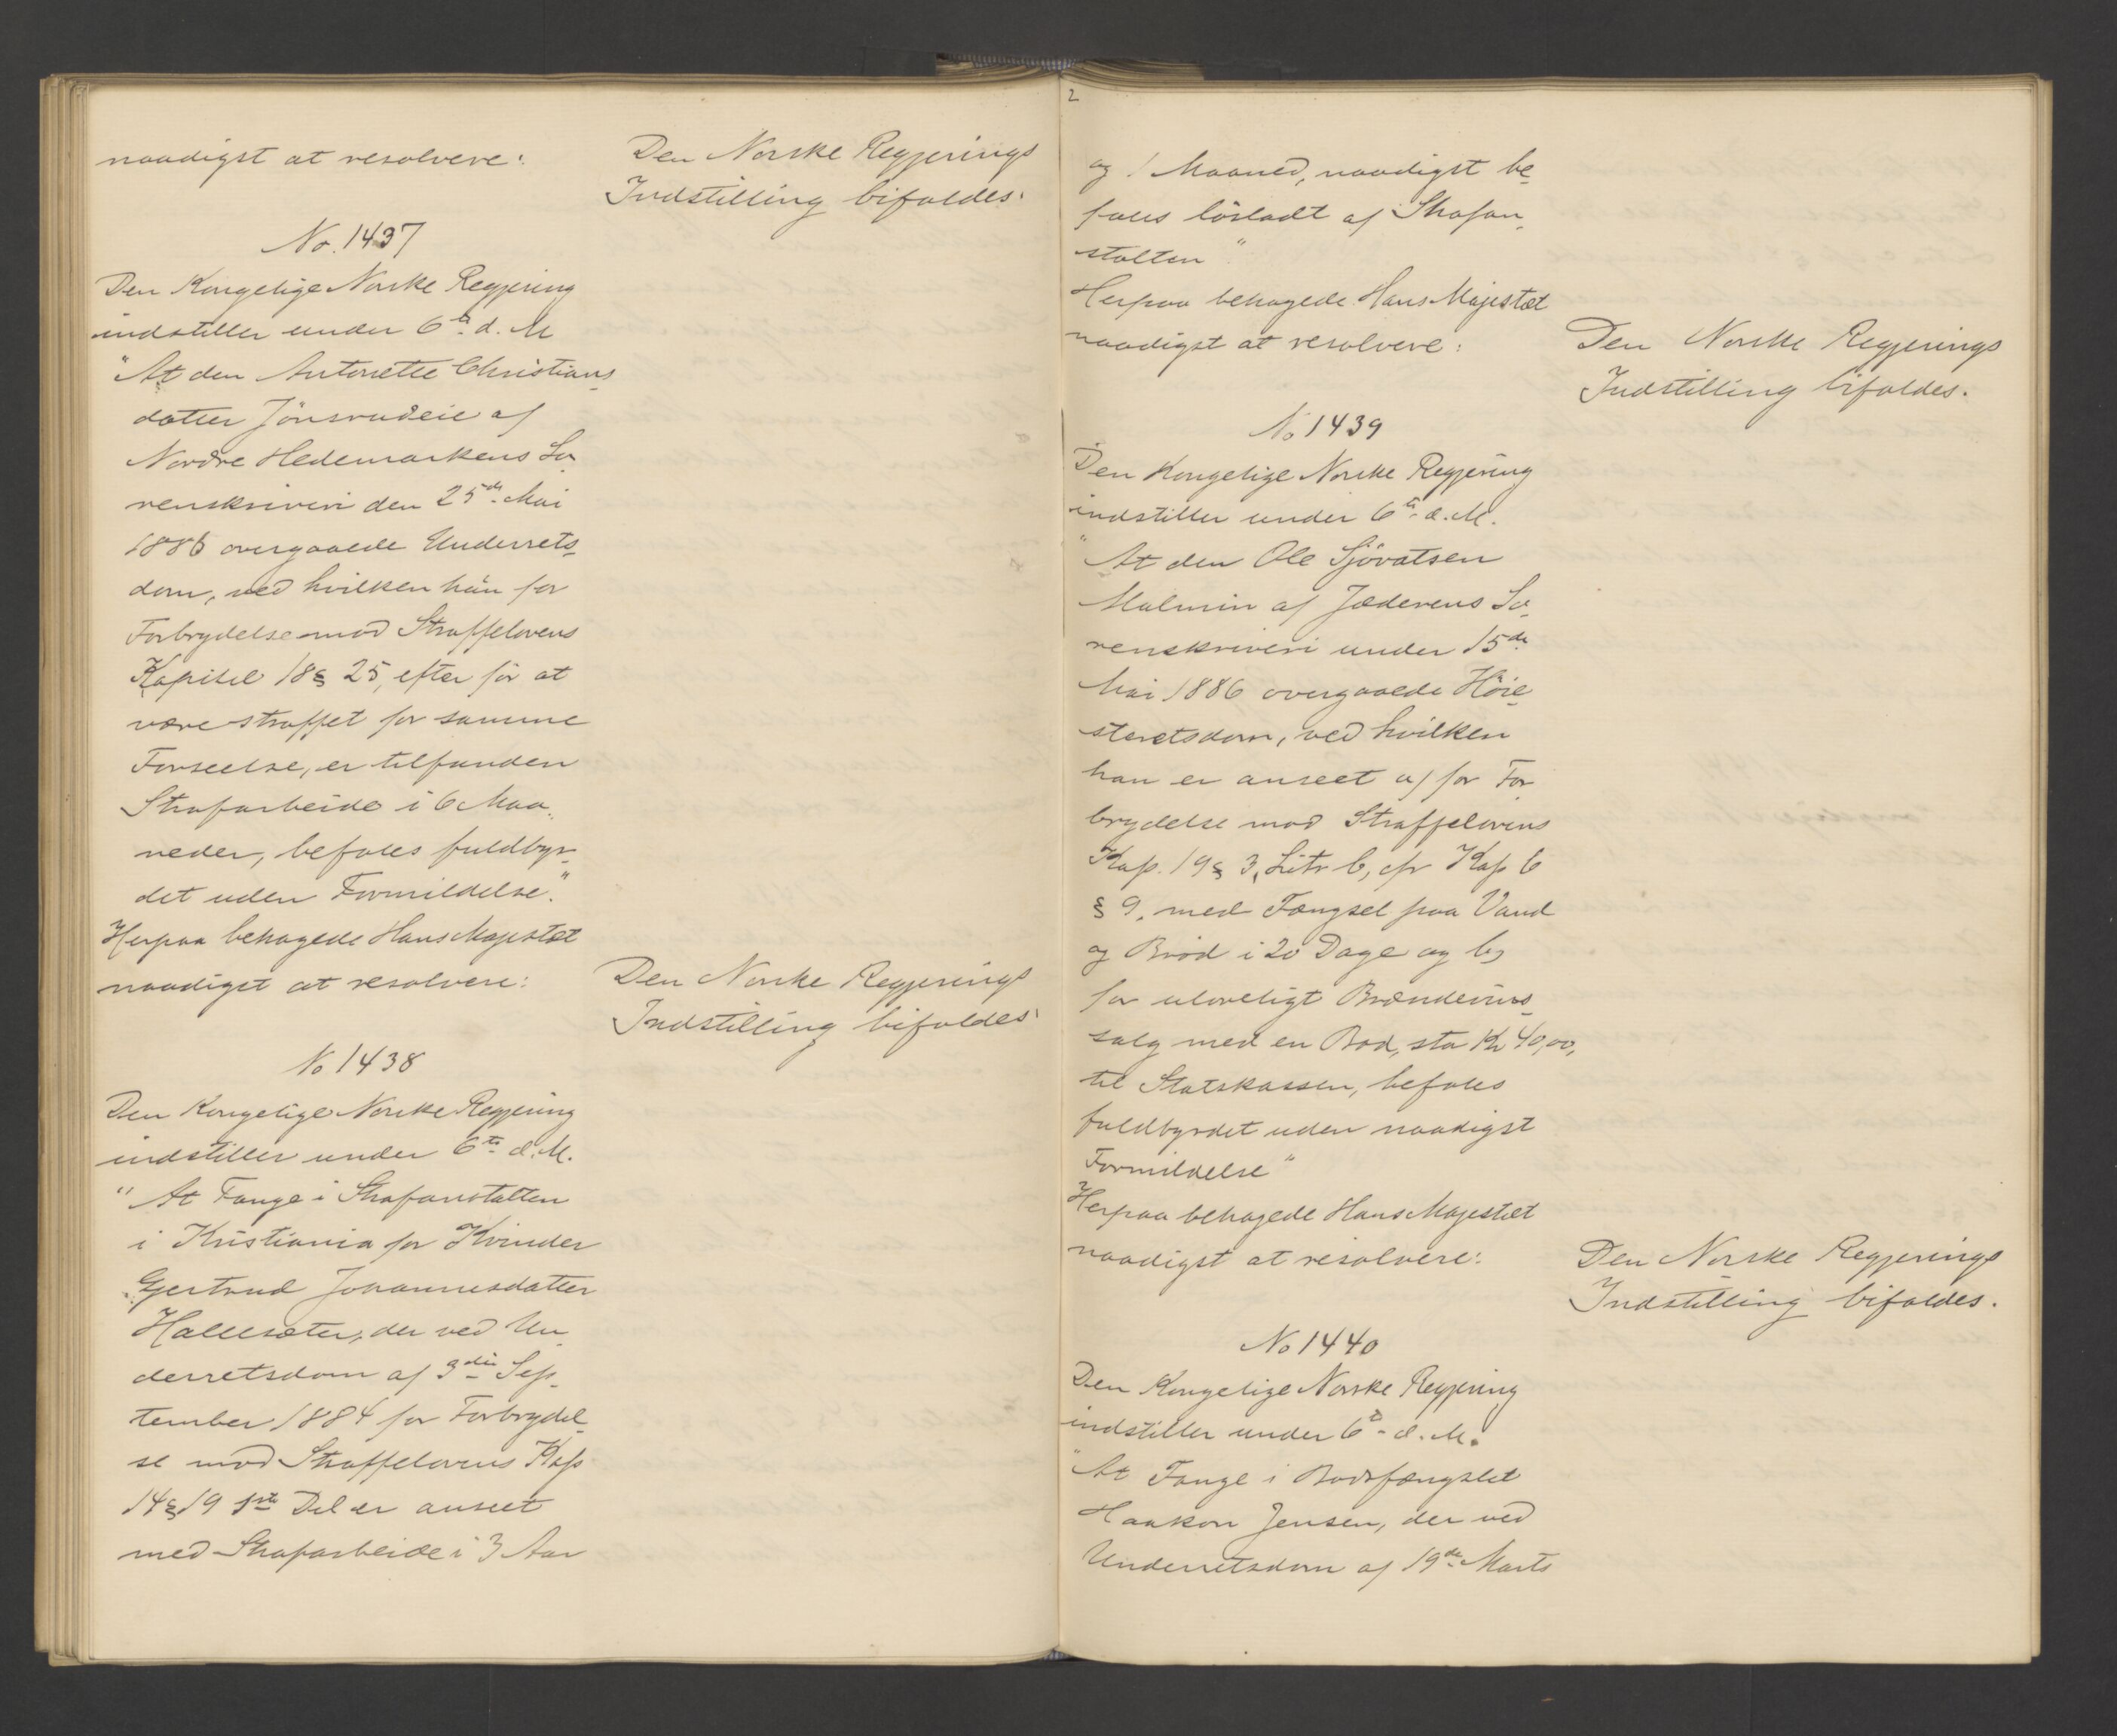 naadigst at resolvere:
Den Norske Regjerings
Indstilling bifaldes.
No. 1437
Den Kongelige Norske Regjering
indstiller under 6te d. M
"At den Antonette Christians-
datter Jönsrudeie af
Nordre Hedemarkens So-
renskriveri den 25de Mai
1886 overgaaede Underrets-
dom, ved hvilken hun for
Forbrydelse mod Straffelovens
Kapitel 18 § 25, efter för at
være straffet for samme
Forseelse, er tilfunden
Strafarbeide i 6 Maa-
neder, befales fuldbyr-
det uden Formildelse."
Herpaa behagede Hans Majestæt
naadigst at resolvere:
Den Norske Regjerings
Indstilling bifaldes.
No 1438
Den Kongelige Norske Regjering
indstiller under 6te d. M.
"At Fange i Strafanstalten
i Kristiania for Kvinder
Gjertrud Johannesdatter
Hallesæter, der ved Un-
derretsdom af 3die Sep-
tember 1884 for Forbrydel-
se mod Straffelovens Kap
14 § 19 1ste Del er anseet
med Strafarbeide i 3 Aar
2
og 1 Maaned, naadigst be-
fales lösladt af Strafan-
stalten"
Herpaa behagede Hans Majestæt
naadigst at resolvere:
Den Norske Regjerings
Indstilling bifaldes.
No 1439
Den Kongelige Norske Regjering
indstiller under 6te d. M.
"At den Ole Sjövatsen
Malmin af Jæderens So-
renskriveri under 15de
Mai 1886 overgaaede Höie-
steretsdom, ved hvilken
han er anseet a) for For-
brydelse mod Straffelovens
Kap. 19 § 3, Litr b, cfr Kap 6
§ 9, med Fængsel paa Vand
og Bröd i 20 Dage og b)
for uloveligt Brændevins-
salg med en Bod, sto Kr 40,00,
til Statskassen, befales
fuldbyrdet uden naadigst
Formildelse"
Herpaa behagede Hans Majestæt
naadigst at resolvere:
Den Norske Regjerings
Indstilling bifaldes.
No 1440
Den Kongelige Norske Regjering
indstiller under 6te d. M.
"At Fange i Bodsfængslet
Haakon Jensen, der ved
Underretsdom af 19de Marts